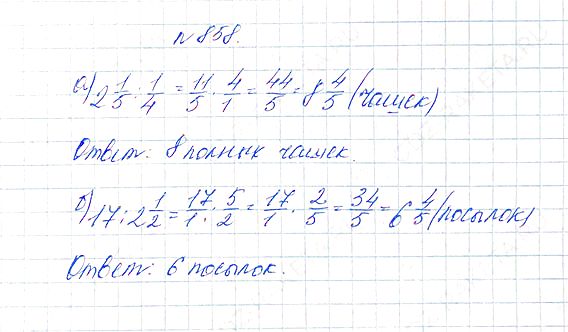 №858.
а) 2 1/5 : 1/4 = 11/5 · 4/1 = 44/5 = 8 4/5 (чашек)
Ответ: 8 полных чашек.
б) 17 : 2 1/2 = 17/1 : 5/2 = 17/1 · 2/5 = 34/5 = 6 4/5 (посылок)
Ответ: 6 посылок.